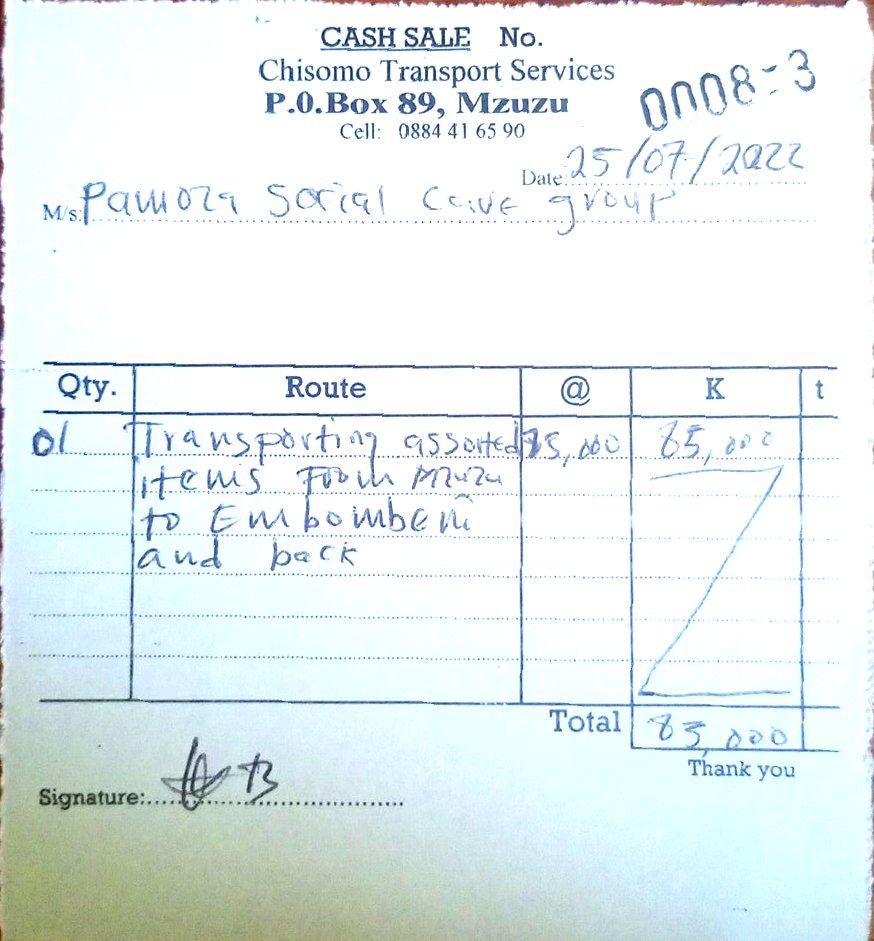 CASH SALE No.
Chisomo Transport Services
P.O.Box 89, Mzuzu
Cell: 0884 41 65 90
Date: 25/07/2022
M/s: Pamoza Social Cave group
Qty. Route @ K t
01 Transporting assorted 85,000 85,000
items From Mzuzu
to Embombeni
and back
Total 85,000
Thank you
Signature: